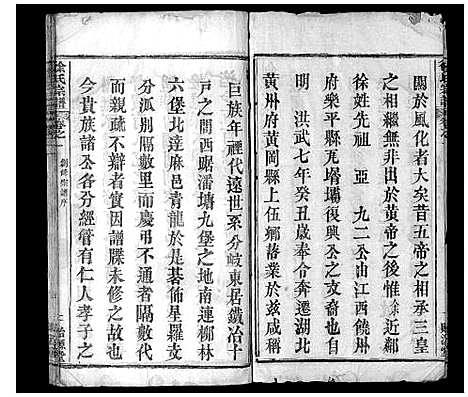 關於風化者大矣昔五帝之於三皇
之相繼無非出於黃帝之後惟余近鄰
徐姓先祖亞九二公由江西饒州
府樂平縣瓦塪壩復興公之支裔也自
明洪武七年癸丑歲奉令奔遷湖北
黃州府黃岡縣上伍鄉落業於茲咸稱
巨族年禋代遠世系分岐東居鐵冶十
戸之間西踞潘塘九堡之地南連柳林
六堡北達麻邑青龍於是碁佈星羅支
分派別相隔數里而慶弔不通者相隔數代
而親疏不辯者實因譜牒未修之故也
今貴族諸公各分經管有仁人孝子之
徐氏宗譜
卷之一
創修宗譜序